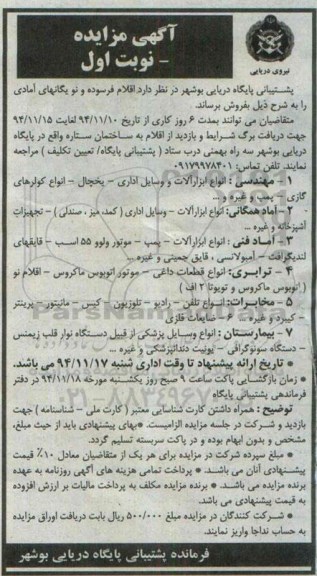 آگهی مزایده
- نوبت اول
نیروی دریایی
پشتیبانی پایگاه دریایی بوشهر در نظر دارد اقلام فرسوده و نو یگانهای آمادی
را به شرح ذیل بفروش برساند.
متقاضیان می توانند بمدت ۶ روز کاری از تاریخ ۹۴/۱۱/۱۰ لغایت ۹۴/۱۱/۱۵
جهت دریافت برگ شرایط و بازدید از اقلام به ساختمان ستاره واقع در پایگاه
دریایی بوشهر سه راه بهمنی درب ستاد ( پشتیبانی پایگاه/ تعیین تکلیف ) مراجعه
نمایند. تلفن تماس: ۰۹۱۷۹۹۷۸۴۰۱
۱ - مهندسی : انواع ابزارآلات و وسایل اداری - یخچال - انواع کولرهای
گازی - پمپ و غیره و ...
۲- آماد همگانی: انواع ابزارآلات - وسایل اداری ( کمد، میز ، صندلی ) - تجهیزات
آشپزخانه و غیره ...
۳- آماد فنی : انواع ابزارآلات - پمپ - موتور ولوو ۵۵ اسب - قایقهای
لندیگرافت - آمبولانسی ، قایق جمینی و غیره ...
۴ - ترابری: انواع قطعات داغی - موتور اتوبوس ماکروس - اقلام نو
( اتوبوس ماکروس و تویوتا ۲ اف )
۵ - مخابرات: انواع تلفن - رادیو - تلوزیون - کیس - مانیتور - پرینتر
- کیبرد و غیره ... - ضایعات فلزی
۷ - بیمارستان : انواع وسایل پزشکی از قبیل دستگاه نوار قلب زیمنس
- دستگاه سونوگرافی - یونیت دندانپزشکی و غیره ...
* تاریخ ارائه پیشنهاد تا وقت اداری شنبه ۹۴/۱۱/۱۷ می باشد.
* زمان بازگشایی پاکت ساعت ۹ صبح روز یکشنبه مورخه ۹۴/۱۱/۱۸ در دفتر
فرماندهی پشتیبانی پایگاه
توضیح : همراه داشتن کارت شناسایی معتبر ( کارت ملی - شناسنامه ) جهت
بازدید و شرکت در جلسه مزایده الزامیست. * بهای پیشنهادی باید از حیث مبلغ،
مشخص و بدون ابهام بوده و در پاکت سربسته تسلیم گردد.
* مبلغ سپرده شرکت در مزایده برای هر یک از متقاضیان معادل ۱۰٪ قیمت
پیشنهادی آنان می باشند. * پرداخت تمامی هزینه های آگهی روزنامه به عهده
برنده مزایده می باشد. * برنده مزایده مکلف به پرداخت مالیات بر ارزش افزوده
به قیمت پیشنهادی می باشد.
* شرکت کنندگان در مزایده مبلغ ۵۰۰/۰۰۰ ریال بابت دریافت اوراق مزایده
به حساب نداجا واریز نمایند.
فرمانده پشتیبانی پایگاه دریایی بوشهر